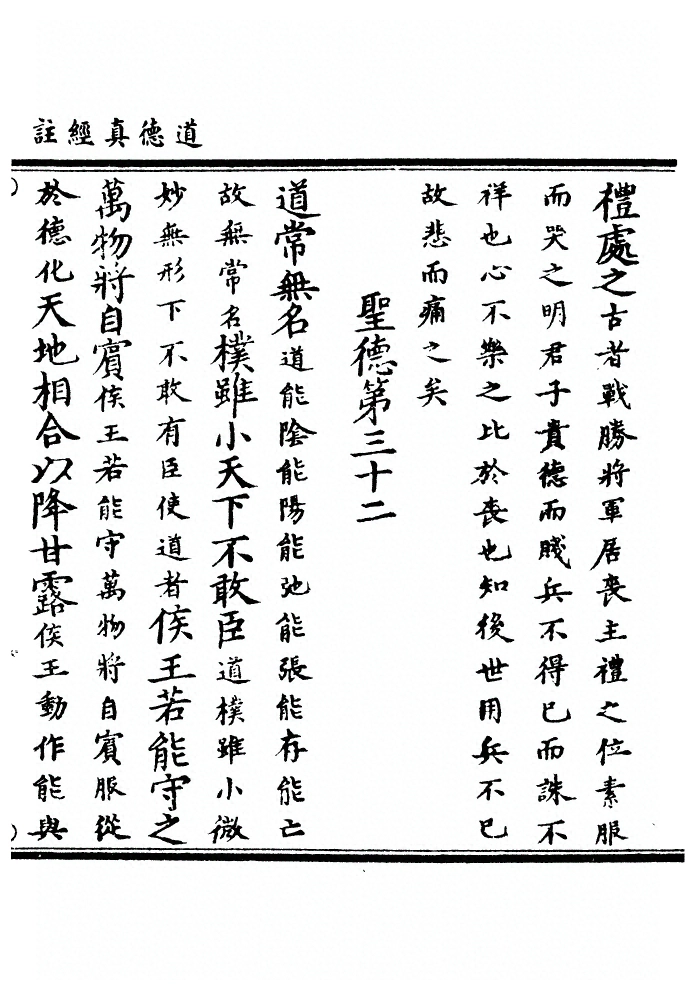 道德真經註
禮處之古者戰勝將軍居喪主禮之位素服
而哭之明君子貴德而賤兵不得已而誅不
祥也心不樂之比於喪也知後世用兵不已
故悲而痛之矣
聖德第三十二
道常無名道能陰能陽能弛能張能存能亡
故無常名樸雖小天下不敢臣道樸雖小微
妙無形下不敢有臣使道者侯王若能守之
萬物將自賓侯王若能守萬物將自賓服從
於德化天地相合以降甘露侯王動作能與